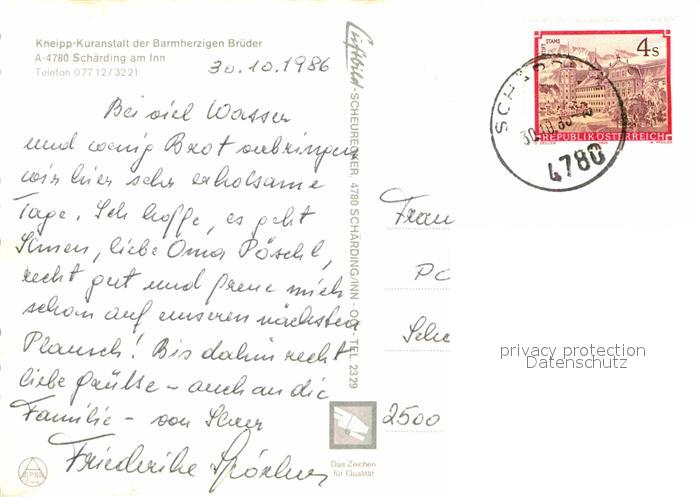 Kneipp-Kuranstalt der Barmherzigen Brüder
A-4780 Schärding am Inn
Telefon 07712/3221
30.10.1986
Bei viel Wasser
und wenig Brot verbringen
wir hier sehr erholsame
Tage. Ich hoffe, es geht
Ihnen, liebe Oma Pöschl,
recht gut und freue mich
schon auf unseren nächsten
Plausch! Bis dahin recht
liebe Grüße – auch an die
Familie – von Ihrer
Friederike
Luftbild-SCHEURECKER, 4780 SCHÄRDING/INN - OÖ - TEL. 2329
Das Zeichen
für Qualität
STIFT STAMS
4 S
REPUBLIK ÖSTERREICH
SCHÄRD
30.10.86
4780
Frau
PÖ
Sche
2500
privacy protection
Datenschutz